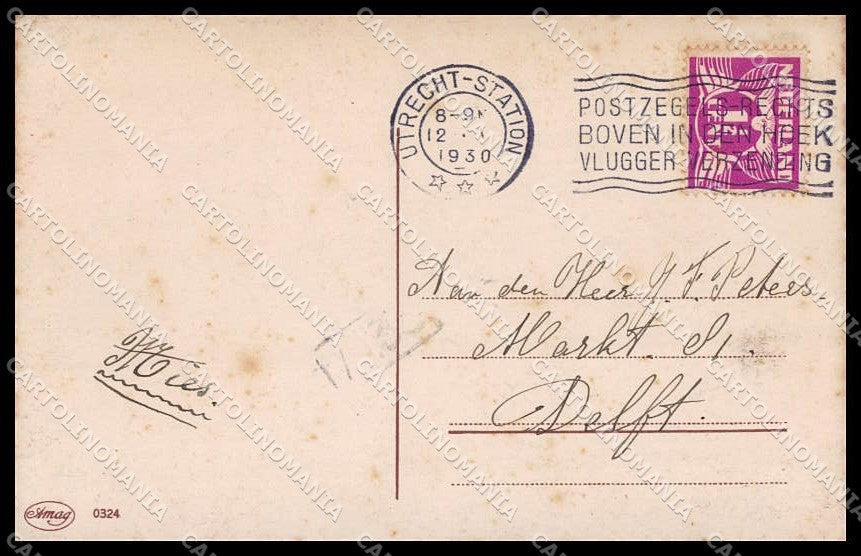 UTRECHT-STATION
8-9N
12
1930
POSTZEGELS-RECHTS
BOVEN IN DEN HOEK
VLUGGER VERZENDING
NEDERLAND
1½
Aan den Heer J. F. Peters.
Markt
Delft.
Mies.
Amag 0324
CARTOLINOMANIA